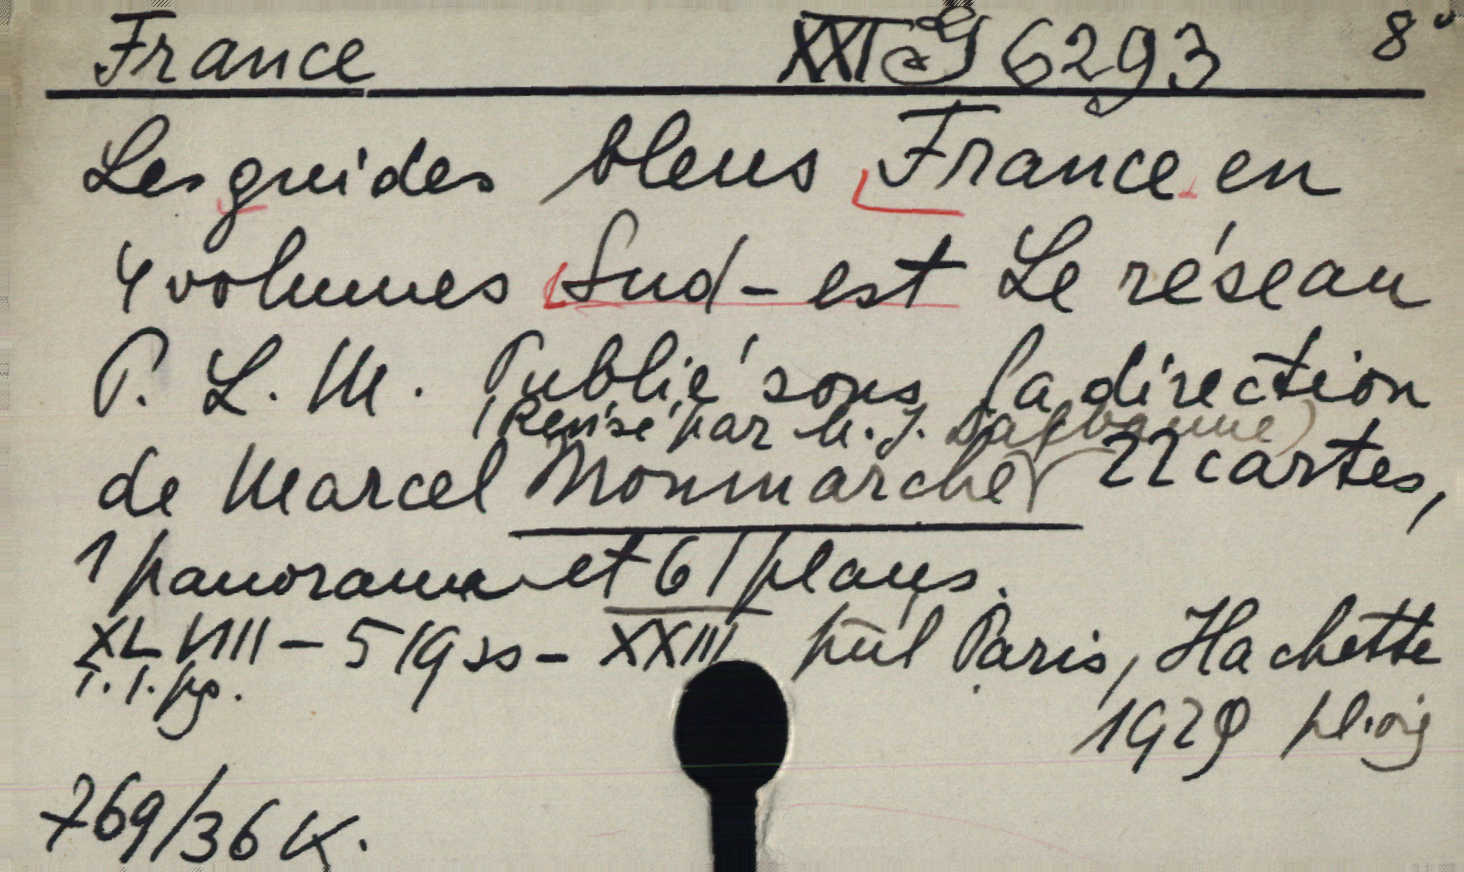 France XXI G 6293 8°
Les guides bleus France en
4 volumes Sud-est Le réseau
P. L. M. Publié sous la direction
(Revisé par M. J. Dagbanne)
de Marcel Monmarché 22 cartes,
1 panorama et 61 plans.
XLVIII - 519 ss - XXIII Paris, Hachette
T. 1. pg. 1929
769/36 K.